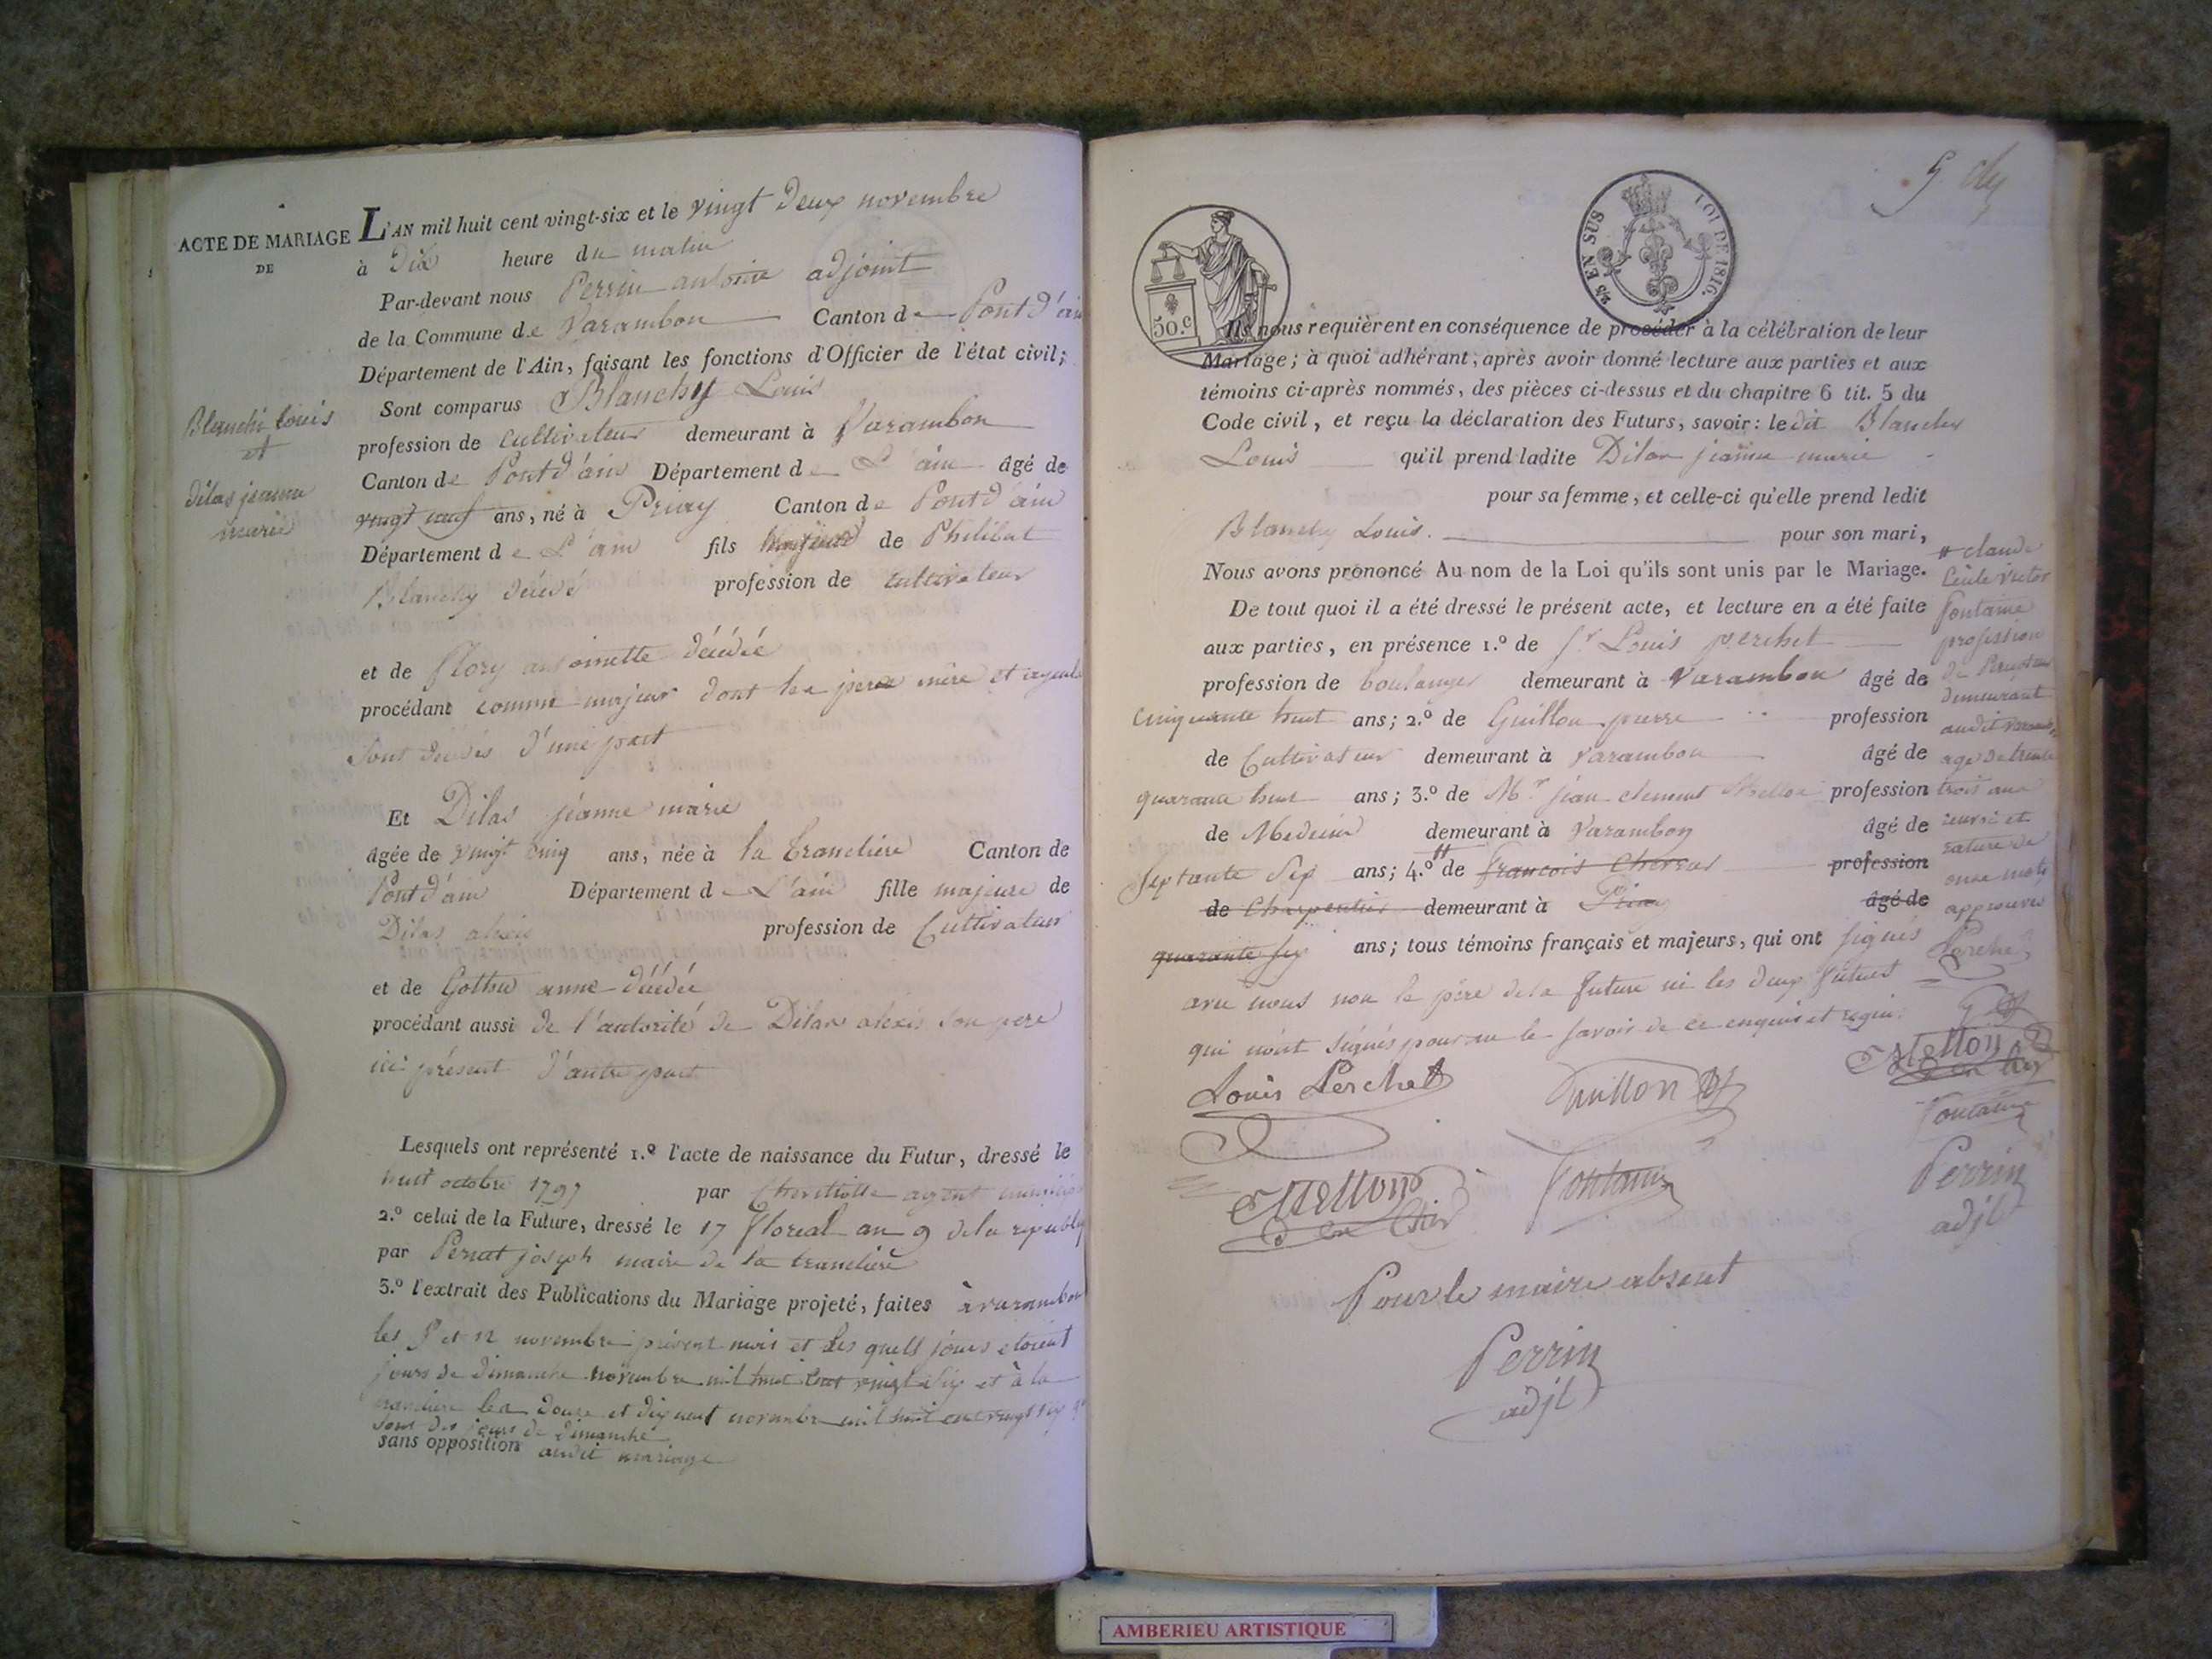 ACTE DE MARIAGE
DE
Blanchi Louis
et
Dilas jeanne
marie
L'AN mil huit cent vingt-six et le vingt Deux novembre
à Dix heure du matin
Par-devant nous Perrin antoine adjoint
de la Commune de Varambon Canton de Pont d'ain
Département de l'Ain, faisant les fonctions d'Officier de l'état civil;
Sont comparus Blanchy Louis
profession de Cultivateur demeurant à Varambon
Canton de Pont d'ain Département de L'ain âgé de
vingt neuf ans, né à Priay Canton de Pont d'ain
Département de L'ain fils majeur de Philibert
Blanchy décédé profession de cultivateur
et de Flory antoinette décédée
procédant comme majeur dont les père mère et ayeuls
sont décédés d'une part
Et Dilas jeanne marie
âgée de vingt cinq ans, née à la tranclière Canton de
Pont d'ain Département de L'ain fille majeure de
Dilas alexis profession de Cultivateur
et de anne décédée
procédant aussi de l'autorité de Dilas alexis son père
ici présent d'autre part
Lesquels ont représenté 1.º l'acte de naissance du Futur, dressé le
huit octobre 1797 par agent
2.º celui de la Future, dressé le 17 floréal an 9 de la républ
par joseph maire de la tranclière
3.º l'extrait des Publications du Mariage projeté, faites à varambon
les 5 et 12 novembre présent mois et les quels jours etoient
jours de dimanche novembre mil huit cent vingt six et à la
tranclière les douze et dix neuf novembre mil huit cent vingt six
sont des jours de dimanche
sans opposition audit mariage
50.c
25 EN SUS
LOI DE 1816.
Ils nous requièrent en conséquence de procéder à la célébration de leur
Mariage; à quoi adhérant, après avoir donné lecture aux parties et aux
témoins ci-après nommés, des pièces ci-dessus et du chapitre 6 tit. 5 du
Code civil, et reçu la déclaration des Futurs, savoir: ledit Blanchy
Louis qu'il prend ladite Dilas jeanne marie
pour sa femme, et celle-ci qu'elle prend ledit
Blanchy Louis. pour son mari,
Nous avons prononcé Au nom de la Loi qu'ils sont unis par le Mariage.
De tout quoi il a été dressé le présent acte, et lecture en a été faite
aux parties, en présence 1.º de Sr Louis perchet
profession de boulanger demeurant à Varambon âgé de
cinquante huit ans; 2.º de Guillon pierre profession
de Cultivateur demeurant à varambon âgé de
quarante huit ans; 3.º de Mr jean clement Mellon profession
de Medecin demeurant à Varambon âgé de
septante six ans; 4.º de françois profession
de Charpentier demeurant à Priay âgé de
quarante six ans; tous témoins français et majeurs, qui ont signés
avec nous non le père de la future ni les deux futurs
qui n'ont signés pour ne le savoir de ce enquis et requis
claude
victor
fontaine
profession
de
demeurant
audit varambon
age de trente
trois ans
renvoi et
rature de
onze mots
approuvés
Perchet
Mellon
Fontaine
Perrin
adjt
Louis Perchet
Guillon
Mellon
Fontaine
Pour le maire absent
Perrin
adjt
AMBERIEU ARTISTIQUE